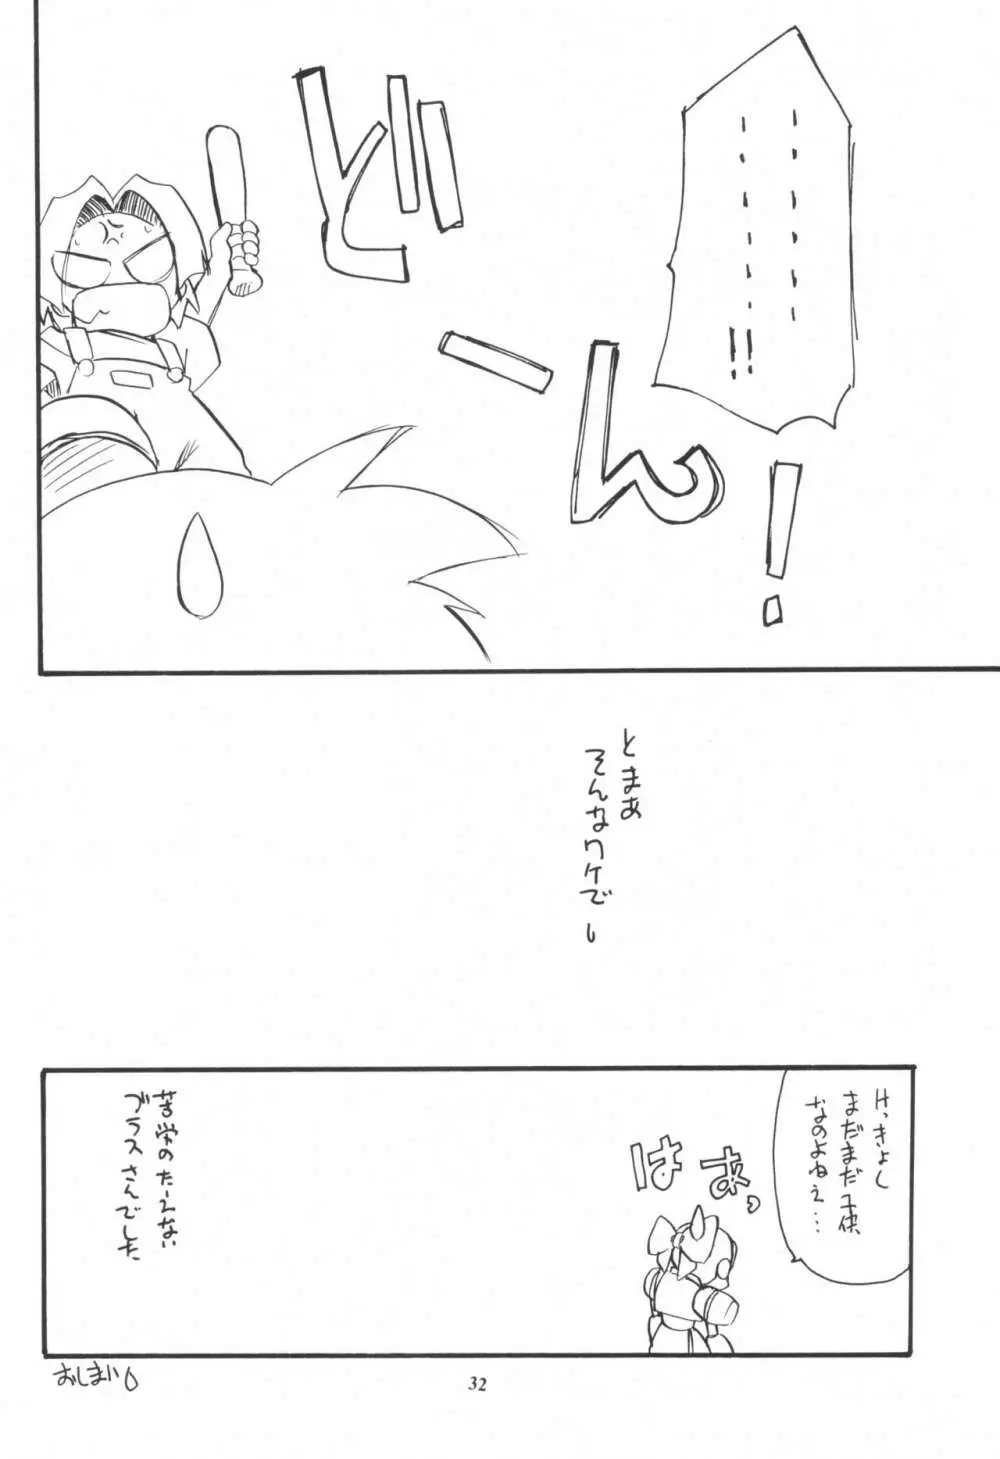 ・・・・・・
・・・・・・!!
どーん!
とまあ
そんなワケで
けっきょく
まだまだ子供
なのよねぇ…
はあ。
苦労のたーえない
ブラスさんでした
おしまい
32